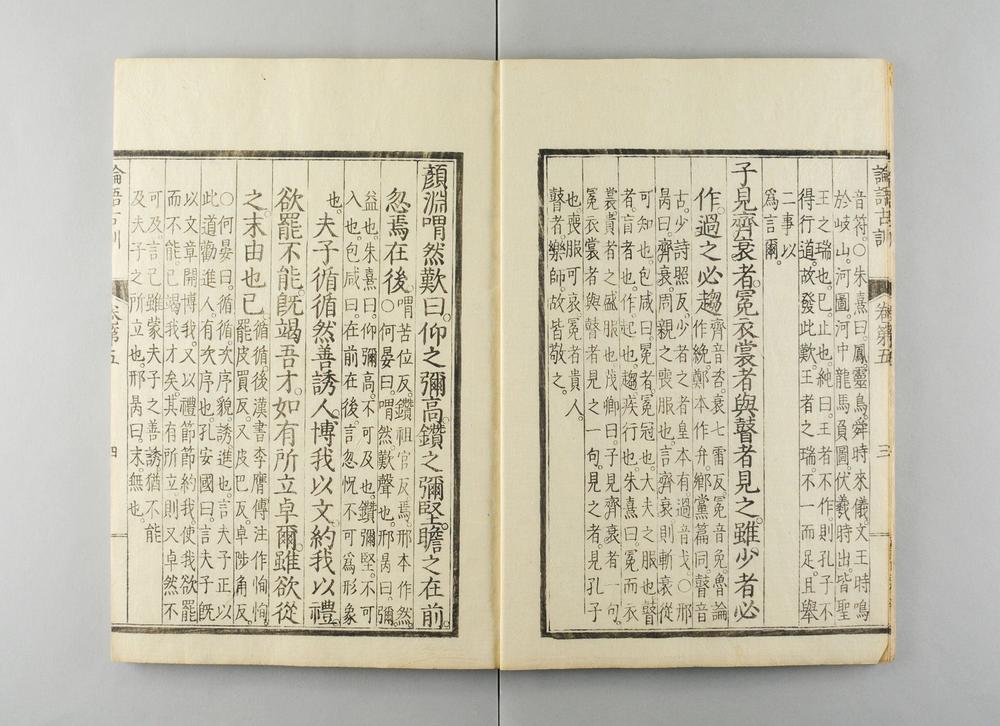 論語古訓
卷第五
三
音符。○朱熹曰。鳳靈鳥。舜時來儀。文王時鳴
於岐山。河圖。河中龍馬負圖。伏羲時出。皆聖
王之瑞也。已。止也。純曰。王者不作則孔子不
得行道。故發此歎。王者之瑞。不一而足。且舉
二事以
爲言爾。
子見齊衰者。冕衣裳者與瞽者見之。雖少者必
作。過之必趨
齊音咨。衰七雷反。冕音免。魯論
作絻。鄭本作弁。鄉黨篇同。瞽音
古。少詩照反。少者之者皇本有過音戈。○邢
昺曰。齊衰。周親之喪服也。言齊衰則斬衰從
可知也。包咸曰。冕者。冕冠也。大夫之服也瞽
者。盲者也。作。起也。趨。疾行也。朱熹曰。冕而衣
裳。貴者之盛服也茂卿曰。子見齊衰者一句。
冕衣裳者與瞽者見之一句。見之者見孔子
也喪服可哀。冕者貴人。
瞽者樂師。故皆敬之。
顏淵喟然歎曰。仰之彌高。鑽之彌堅。瞻之在前。
忽焉在後。
喟苦位反。鑽祖官反。焉。邢本作然。
○何晏曰。喟然歎聲也。邢昺曰。彌。
益也。朱熹曰。仰彌高。不可及也。鑽彌堅。不可
入也。包咸曰。在前在後。言忽怳不可爲形象
也。
夫子循循然善誘人。博我以文。約我以禮。
欲罷不能。既竭吾才。如有所立卓爾。雖欲從
之。末由也已
循循。後漢書李膺傳注作恂恂。
罷皮買反。又皮巴反。卓陟角反。
○何晏曰。循循。次序貌。誘進也。言夫子正以
此道勸進人。有次序也。孔安國曰。言夫子既
以文章開博我。又以禮節節約我。使我欲罷
而不能。已竭我才矣。其有所立則又卓然不
可及。言已雖蒙夫子之善誘猶不能
及夫子之所立也。邢昺曰。末。無也。
論語古訓
卷第五
四